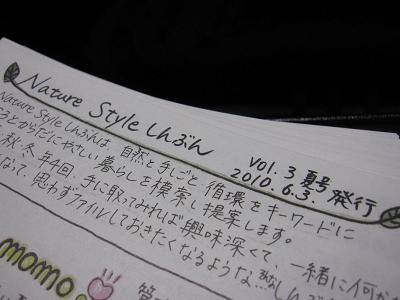 Nature Style しんぶん
vol.3 夏号
2010.6.3. 発行
Nature Style しんぶんは、自然と手しごと 循環をキーワードに
ろとからだにやさしい暮らしを模索し提案します。
秋・冬 年4回、手に取ってみれば興味深くて、一緒に何か
なって、思わずファイルしておきたくなるような、然しい
momo